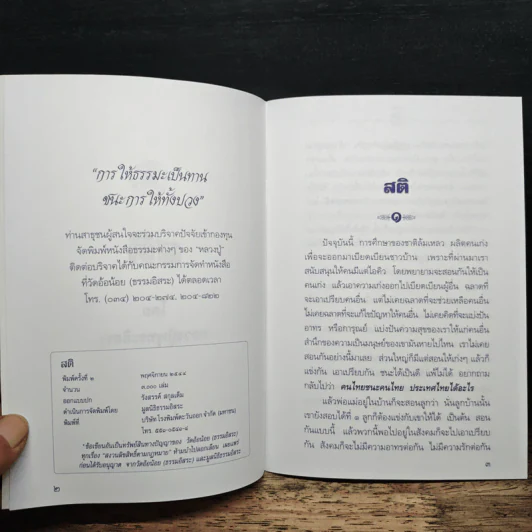 "การให้ธรรมะเป็นทาน
ชนะการให้ทั้งปวง"
ท่านสาธุชนผู้สนใจจะร่วมบริจาคปัจจัยเข้ากองทุน
จัดพิมพ์หนังสือธรรมะต่างๆ ของ "หลวงปู่"
ติดต่อบริจาคได้กับคณะกรรมการจัดทำหนังสือ
ที่วัดอ้อน้อย (ธรรมอิสระ) ได้ตลอดเวลา
โทร. (๐๓๔) ๒๐๔-๒๗๔, ๒๐๔-๘๒๒
สติ
พิมพ์ครั้งที่ ๒ พฤศจิกายน ๒๕๔๔
จำนวน ๓,๐๐๐ เล่ม
ออกแบบปก รังสรรค์
ดำเนินการจัดพิมพ์โดย มูลนิธิธรรมอิสระ
พิมพ์ที่ บริษัท โรงพิมพ์ตะวันออก จำกัด (มหาชน)
โทร.
"ข้อเขียนอันเป็นทรัพย์สินทางปัญญาของ วัดอ้อน้อย (ธรรมอิสระ)
ทุกเรื่อง "สงวนลิขสิทธิ์ตามกฎหมาย" ห้ามนำไปลอกเลียน เผยแพร่
ก่อนได้รับอนุญาต จากวัดอ้อน้อย (ธรรมอิสระ) และมูลนิธิธรรมอิสระ
๒
สติ
๑
ปัจจุบันนี้ การศึกษาของชาติล้มเหลว ผลิตคนเก่ง
เพื่อจะออกมาเบียดเบียนชาวบ้าน เพราะที่ผ่านมาเรา
สนับสนุนให้คนมีแต่ไอคิว โดยพยายามจะสอนกันให้เป็น
คนเก่ง แล้วเอาความเก่งออกไปเบียดเบียนผู้อื่น ฉลาดที่
จะเอาเปรียบคนอื่น แต่ไม่เคยฉลาดที่จะช่วยเหลือคนอื่น
ไม่เคยฉลาดที่จะแก้ไขปัญหาให้คนอื่น ไม่เคยคิดที่จะแบ่งปัน
อาทร หรือการุณย์ แบ่งปันความสุขของเราให้แก่คนอื่น
สำนึกของความเป็นมนุษย์ของเขามันหายไปไหน เราไม่เคย
สอนกันอย่างนี้มาเลย ส่วนใหญ่ก็มีแต่สอนให้เก่งๆ แล้วก็
แข่งกัน เอาเปรียบกัน ชนะได้เป็นดี แพ้ไม่ได้ อยากถาม
กลับไปว่า คนไทยชนะคนไทย ประเทศไทยได้อะไร
แล้วพ่อแม่อยู่ในบ้านก็จะสอนลูกว่า นั่นลูกบ้านนั้น
เขายังสอบได้ที่ ๑ ลูกก็ต้องแข่งกับเขาให้ได้ เป็นต้น สอน
กันแบบนี้ แล้วพวกนี้พอไปอยู่ในสังคมก็จะไปเอาเปรียบ
กัน สังคมก็จะไม่มีความอาทรต่อกัน ไม่มีความรักต่อกัน
๓